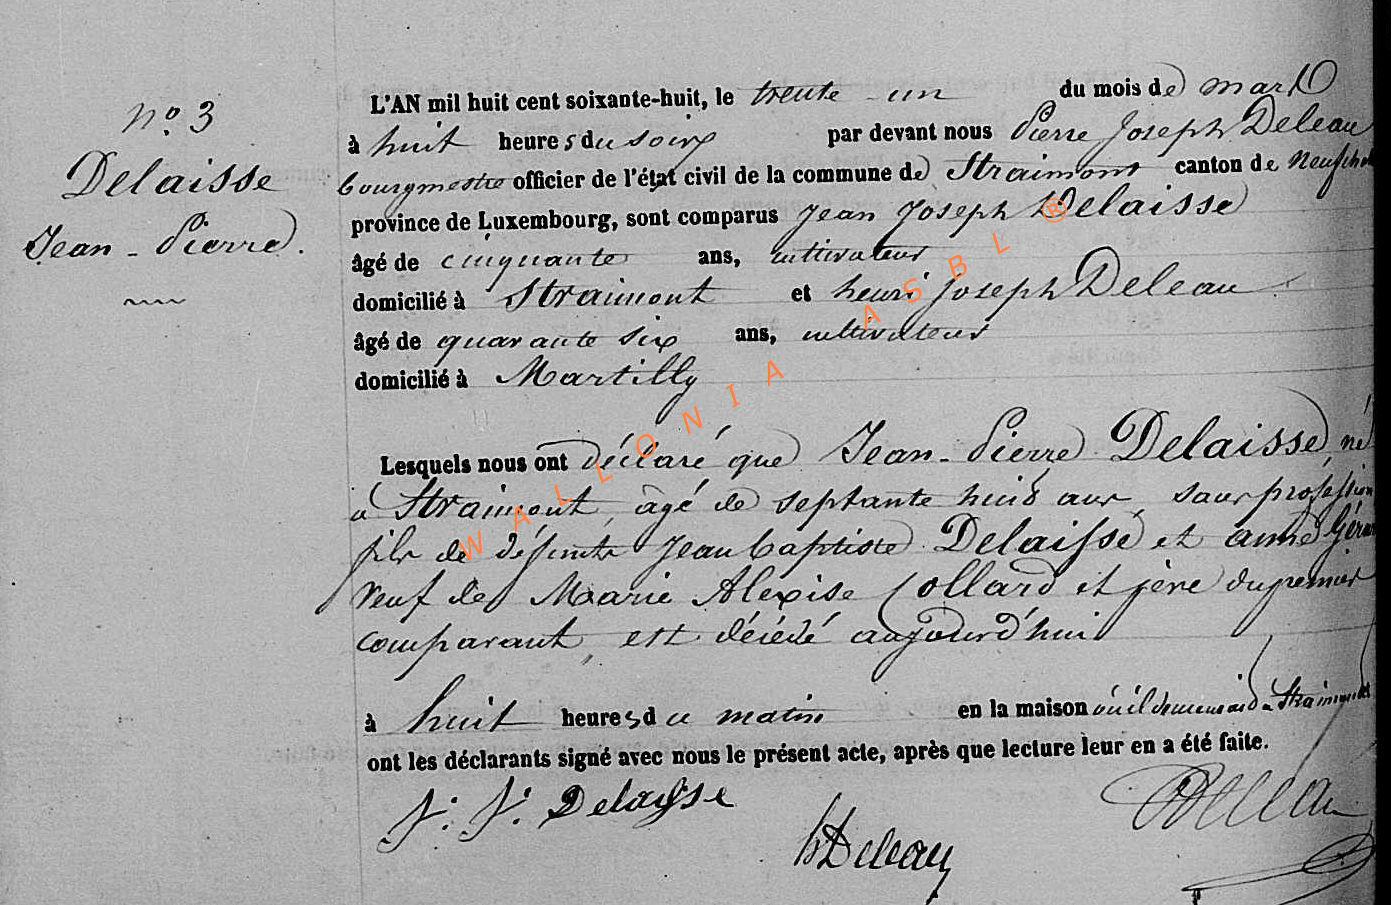 No. 3
Delaisse
Jean - Pierre.
L'AN mil huit cent soixante-huit, le trente - un du mois de mars
à huit heures du soir par devant nous Pierre Joseph Deleau
bourgmestre officier de l'état civil de la commune de Straimont canton de Neufchat
province de Luxembourg, sont comparus Jean Joseph Delaisse
âgé de cinquante ans, cultivateur
domicilié à Straimont et henri Joseph Deleau
âgé de quarante six ans, cultivateur
domicilié à Martilly
Lesquels nous ont déclaré que Jean - Pierre Delaisse, né
à Straimont, âgé de septante huit ans, sans profession
fils de défunts Jean baptiste Delaisse et anne Gérar
veuf de Marie Alexise Collard et père du premier
comparant, est décédé aujourd'hui
à huit heures du matin en la maison où il demeurait à Straimont
ont les déclarants signé avec nous le présent acte, après que lecture leur en a été faite.
J. J. Delaisse
h Deleau
Deleau
WALLONIA ASBL ®